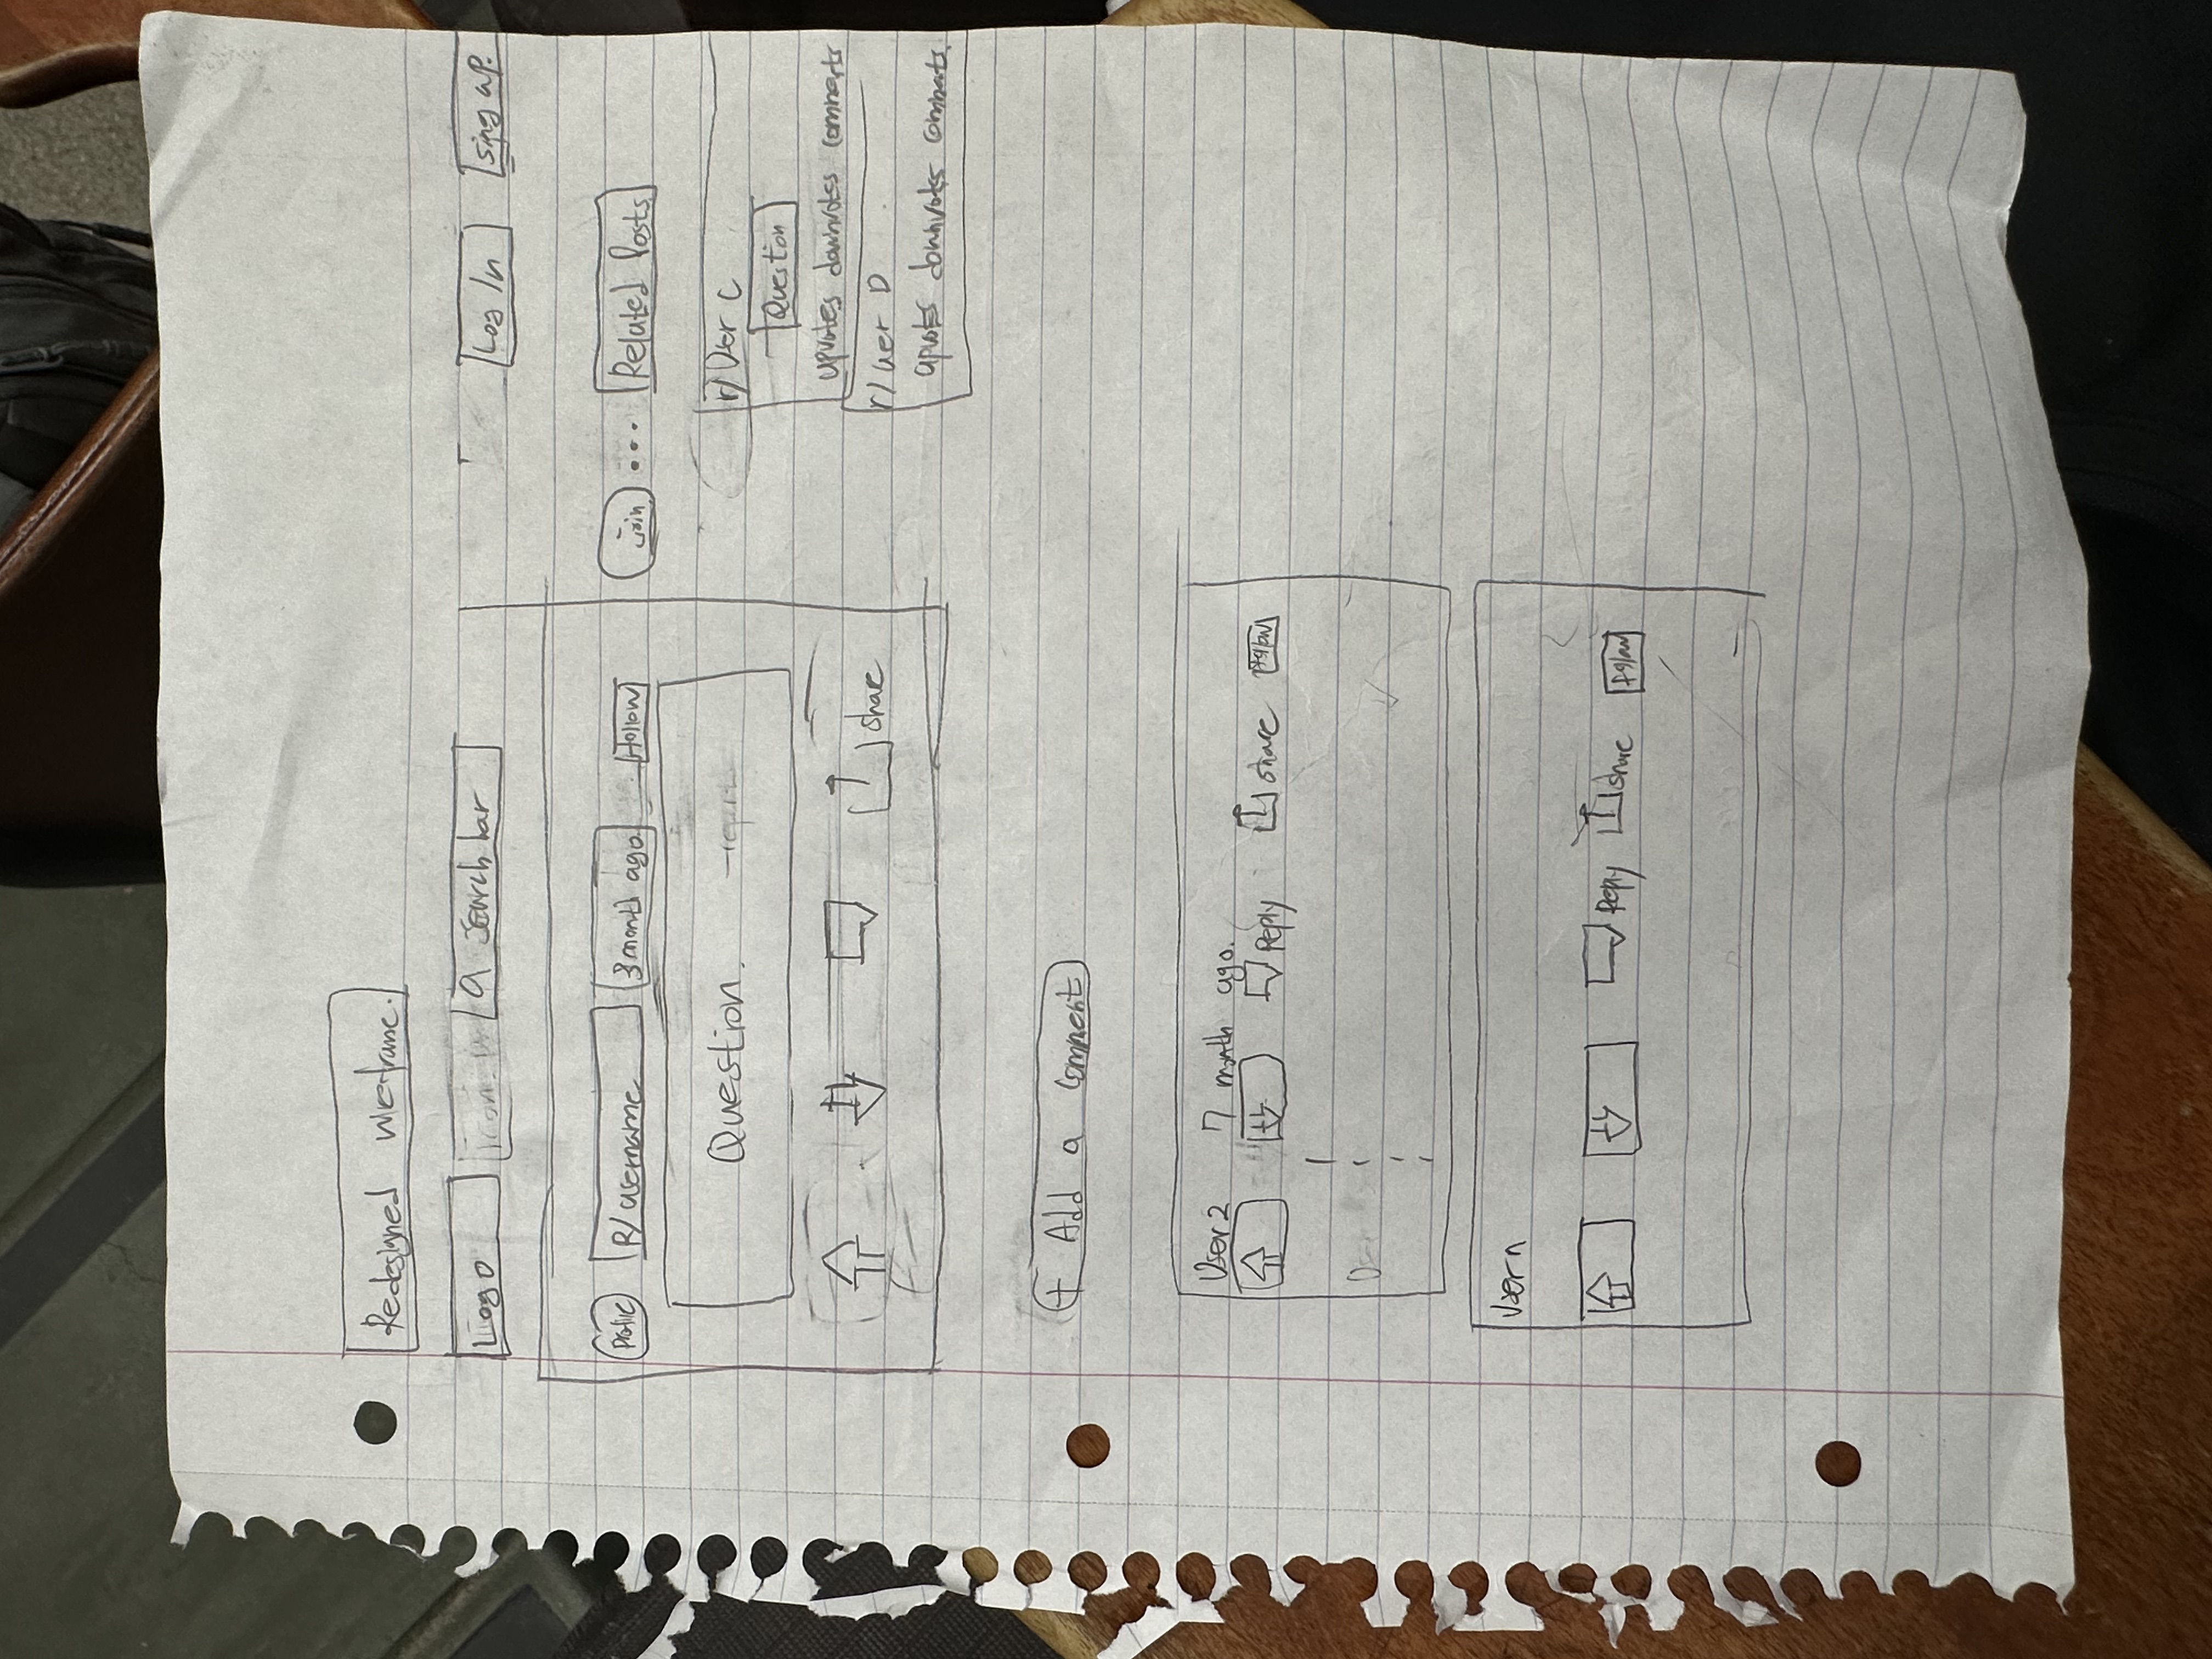 Redesigned wireframe.
Logo Search bar Log In Sing up.
Profile R/username 3 month ago Follow Join ... Related Posts
Question.
r/User C
Question
upvotes downvotes comments
share
r/User D
upvotes downvotes comments.
+ Add a comment
User 2 7 month ago.
Reply share Follow
User n
Reply share Follow